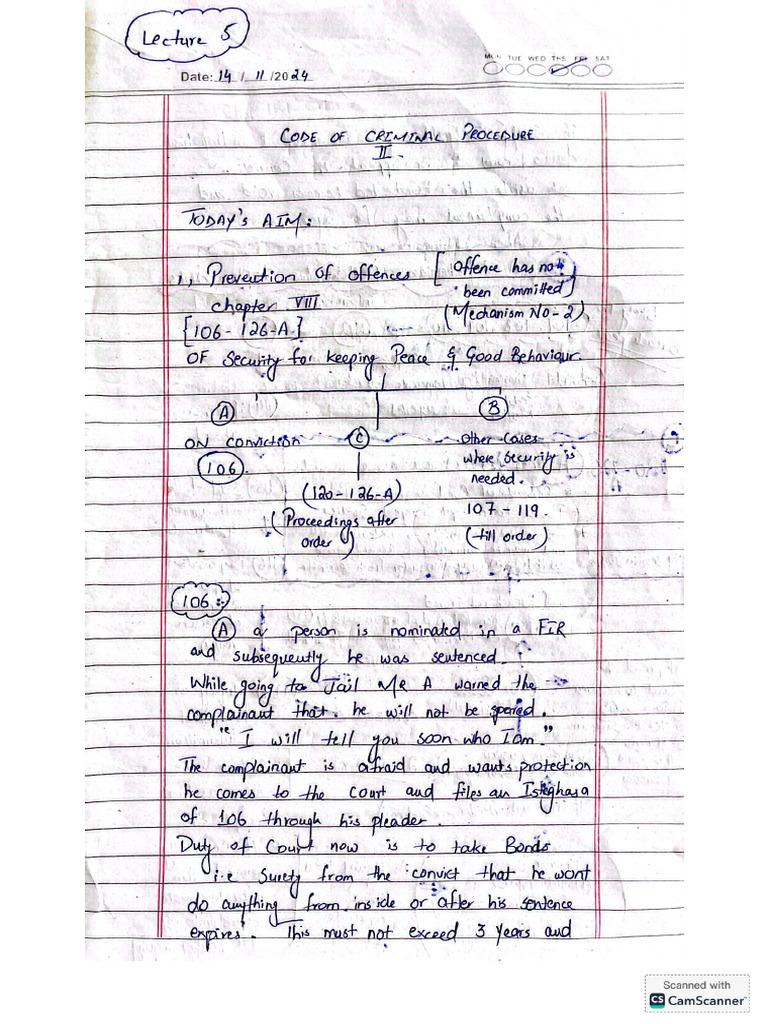 Lecture 5
MON TUE WED THS FRI SAT
Date: 14 / 11 /2024
CODE OF CRIMINAL PROCEDURE
II.
TODAY'S AIM:
1, Prevention of offences [Offence has not
been committed]
chapter VIII (Mechanism No-2)
[106-126-A]
OF Security for keeping Peace & Good Behaviour
A B
ON conviction C Other Cases
106. where security is
needed.
(120-126-A) 107-119.
(Proceedings after (till order)
order)
106:-
A a person is nominated in a FIR
and subsequently he was sentenced.
While going to Jail MR A warned the
complainant that he will not be spared.
"I will tell you soon who I am."
The complainant is afraid and wants protection
he comes to the court and files an Isteghasa
of 106 through his pleader.
Duty of Court now is to take Bonds
i.e Surety from the convict that he wont
do anything from inside or after his sentence
expires. This must not exceed 3 Years and
Scanned with
CS CamScanner